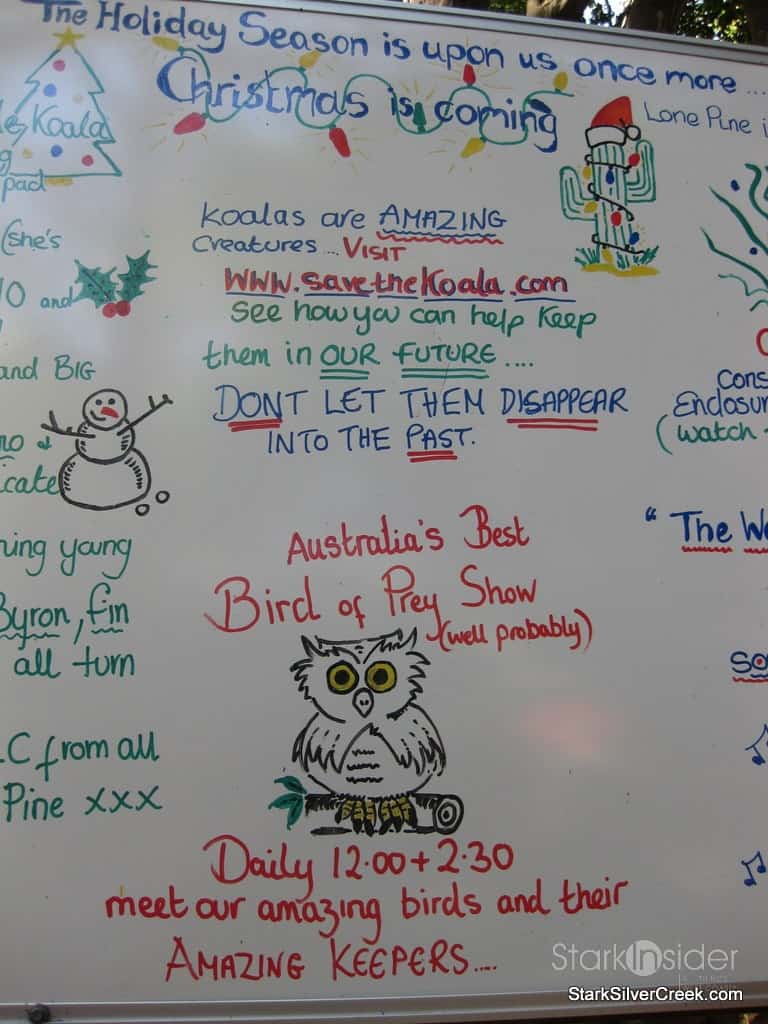 The Holiday Season is upon us once more ....
Christmas is coming
Koala
pad
(she's
10 and
and BIG
ning young
Byron, fin
all turn
C from all
Pine xxx
Koalas are AMAZING
Creatures... VISIT
WWW.savetheKoala.com
See how you can help Keep
them in OUR FUTURE ....
DONT LET THEM DISAPPEAR
INTO THE PAST.
Australia's Best
Bird of Prey Show
(well probably)
Daily 12.00 + 2.30
meet our amazing birds and their
AMAZING KEEPERS....
Lone Pine i
Cons
Enclosur
(watch
" The We
so
StarkInsider
StarkSilverCreek.com